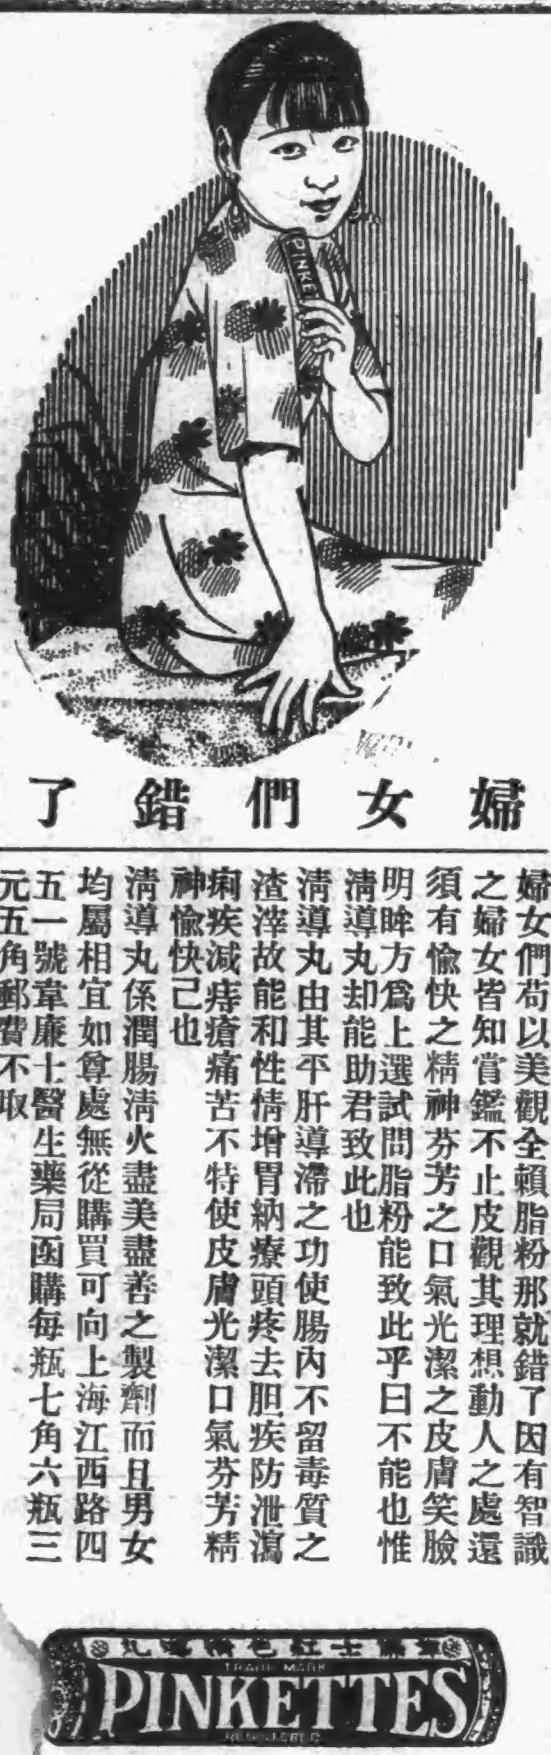 PINKE
婦女們錯了
婦女們苟以美觀全賴脂粉那就錯了因有智識
之婦女皆知賞鑑不止皮觀其理想動人之處還
須有愉快之精神芬芳之口氣光潔之皮膚笑臉
明眸方爲上選試問脂粉能致此乎曰不能也惟
淸導丸却能助君致此也
淸導丸由其平肝導滯之功使腸內不留毒質之
渣滓故能和性情增胃納療頭疼去胆疾防泄瀉
痢疾減痔瘡痛苦不特使皮膚光潔口氣芬芳精
神愉快己也
淸導丸係潤腸淸火盡美盡善之製劑而且男女
均屬相宜如尊處無從購買可向上海江西路四
五一號韋廉士醫生藥局函購每瓶七角六瓶三
元五角郵費不取
韋廉士紅色淸導丸
TRADE MARK
PINKETTES
REGISTERED